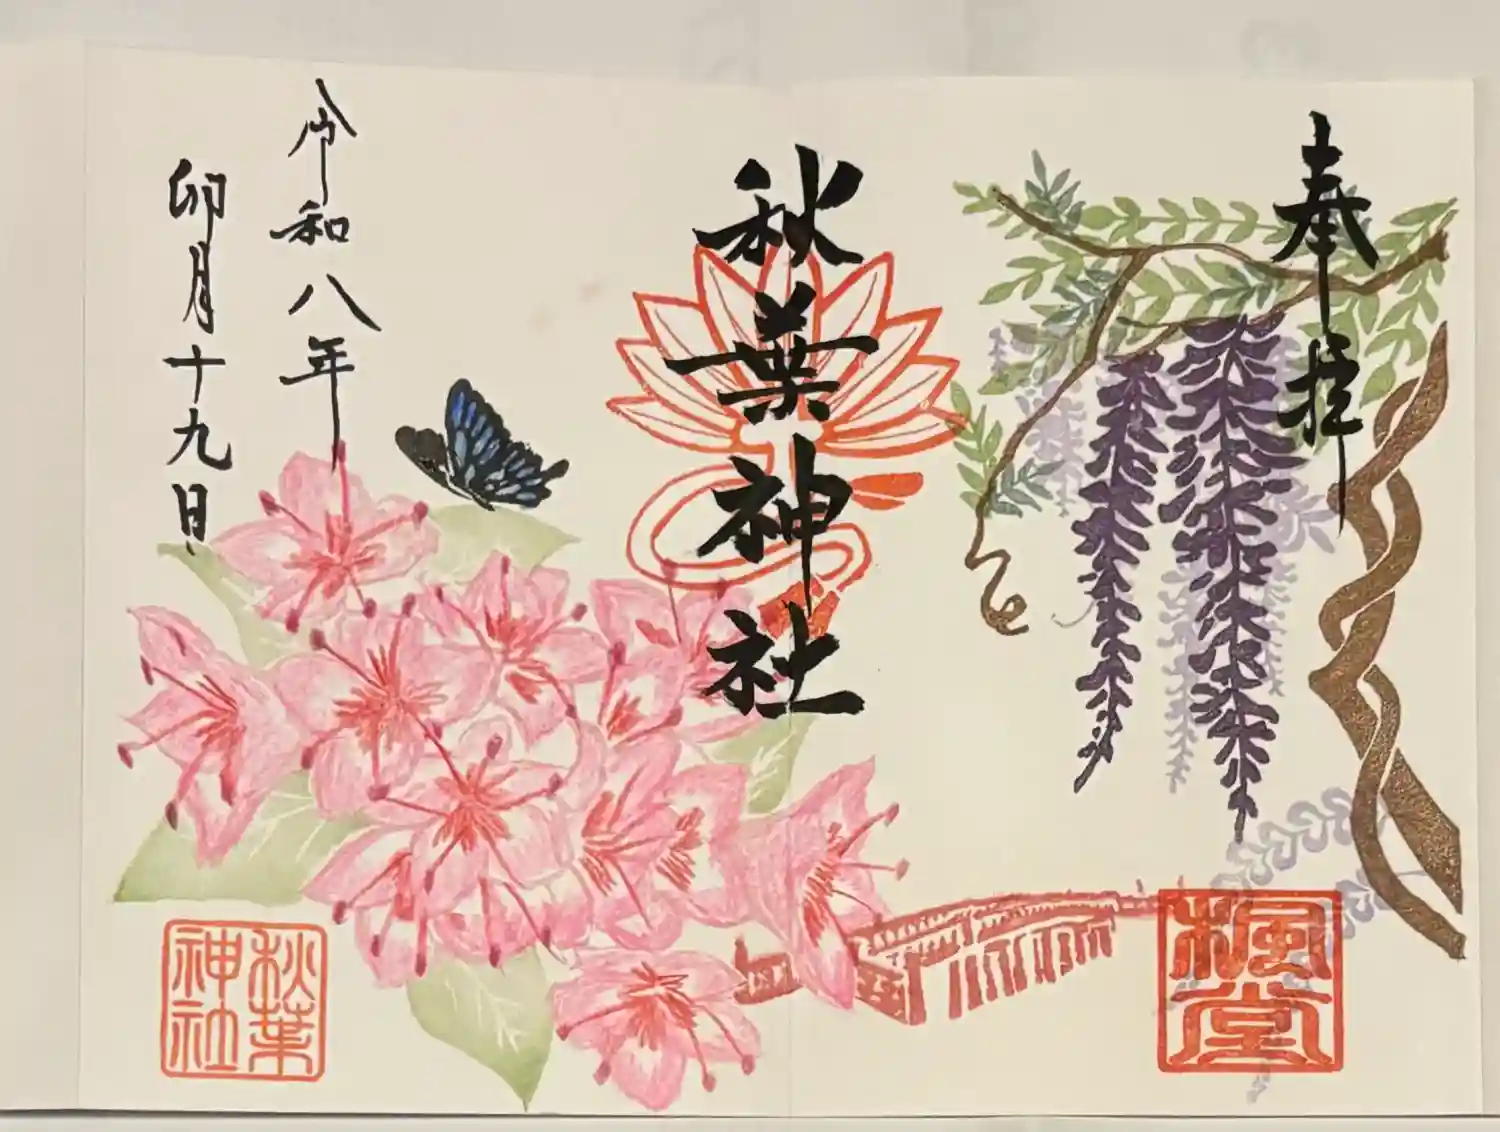 奉拝
秋葉神社
令和八年
卯月十九日
楓堂
秋葉神社